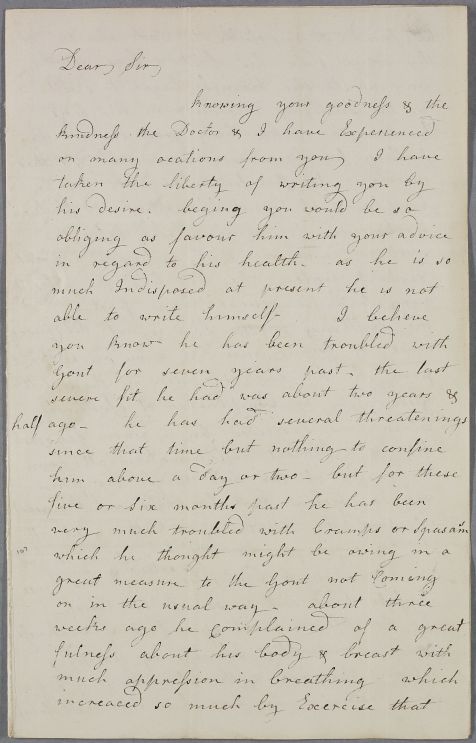 Dear Sir
Knowing your goodness & the
kindness the Doctor & I have Experienced
on many ocations from you I have
taken the liberty of writing you by
his desire. beging you would be so
obliging as favour him with your advice
in regard to his health. as he is so
much Indisposed at present he is not
able to write himself - I believe
you know he has been troubled with
Gout for seven years past. the last
severe fit he had was about two years &
half ago - he has had several threatenings
since that time but nothing to confine
him above a day or two - but for these
five or six months past he has been
very much troubled with Cramps or Spasam
which he thought might be owing in a
great measure to the Gout not Coming
on in the usual way - about three
weeks ago he Complained of a great
fulness about his body & breast with
much oppression in breathing which
increaced so much by Excercise that